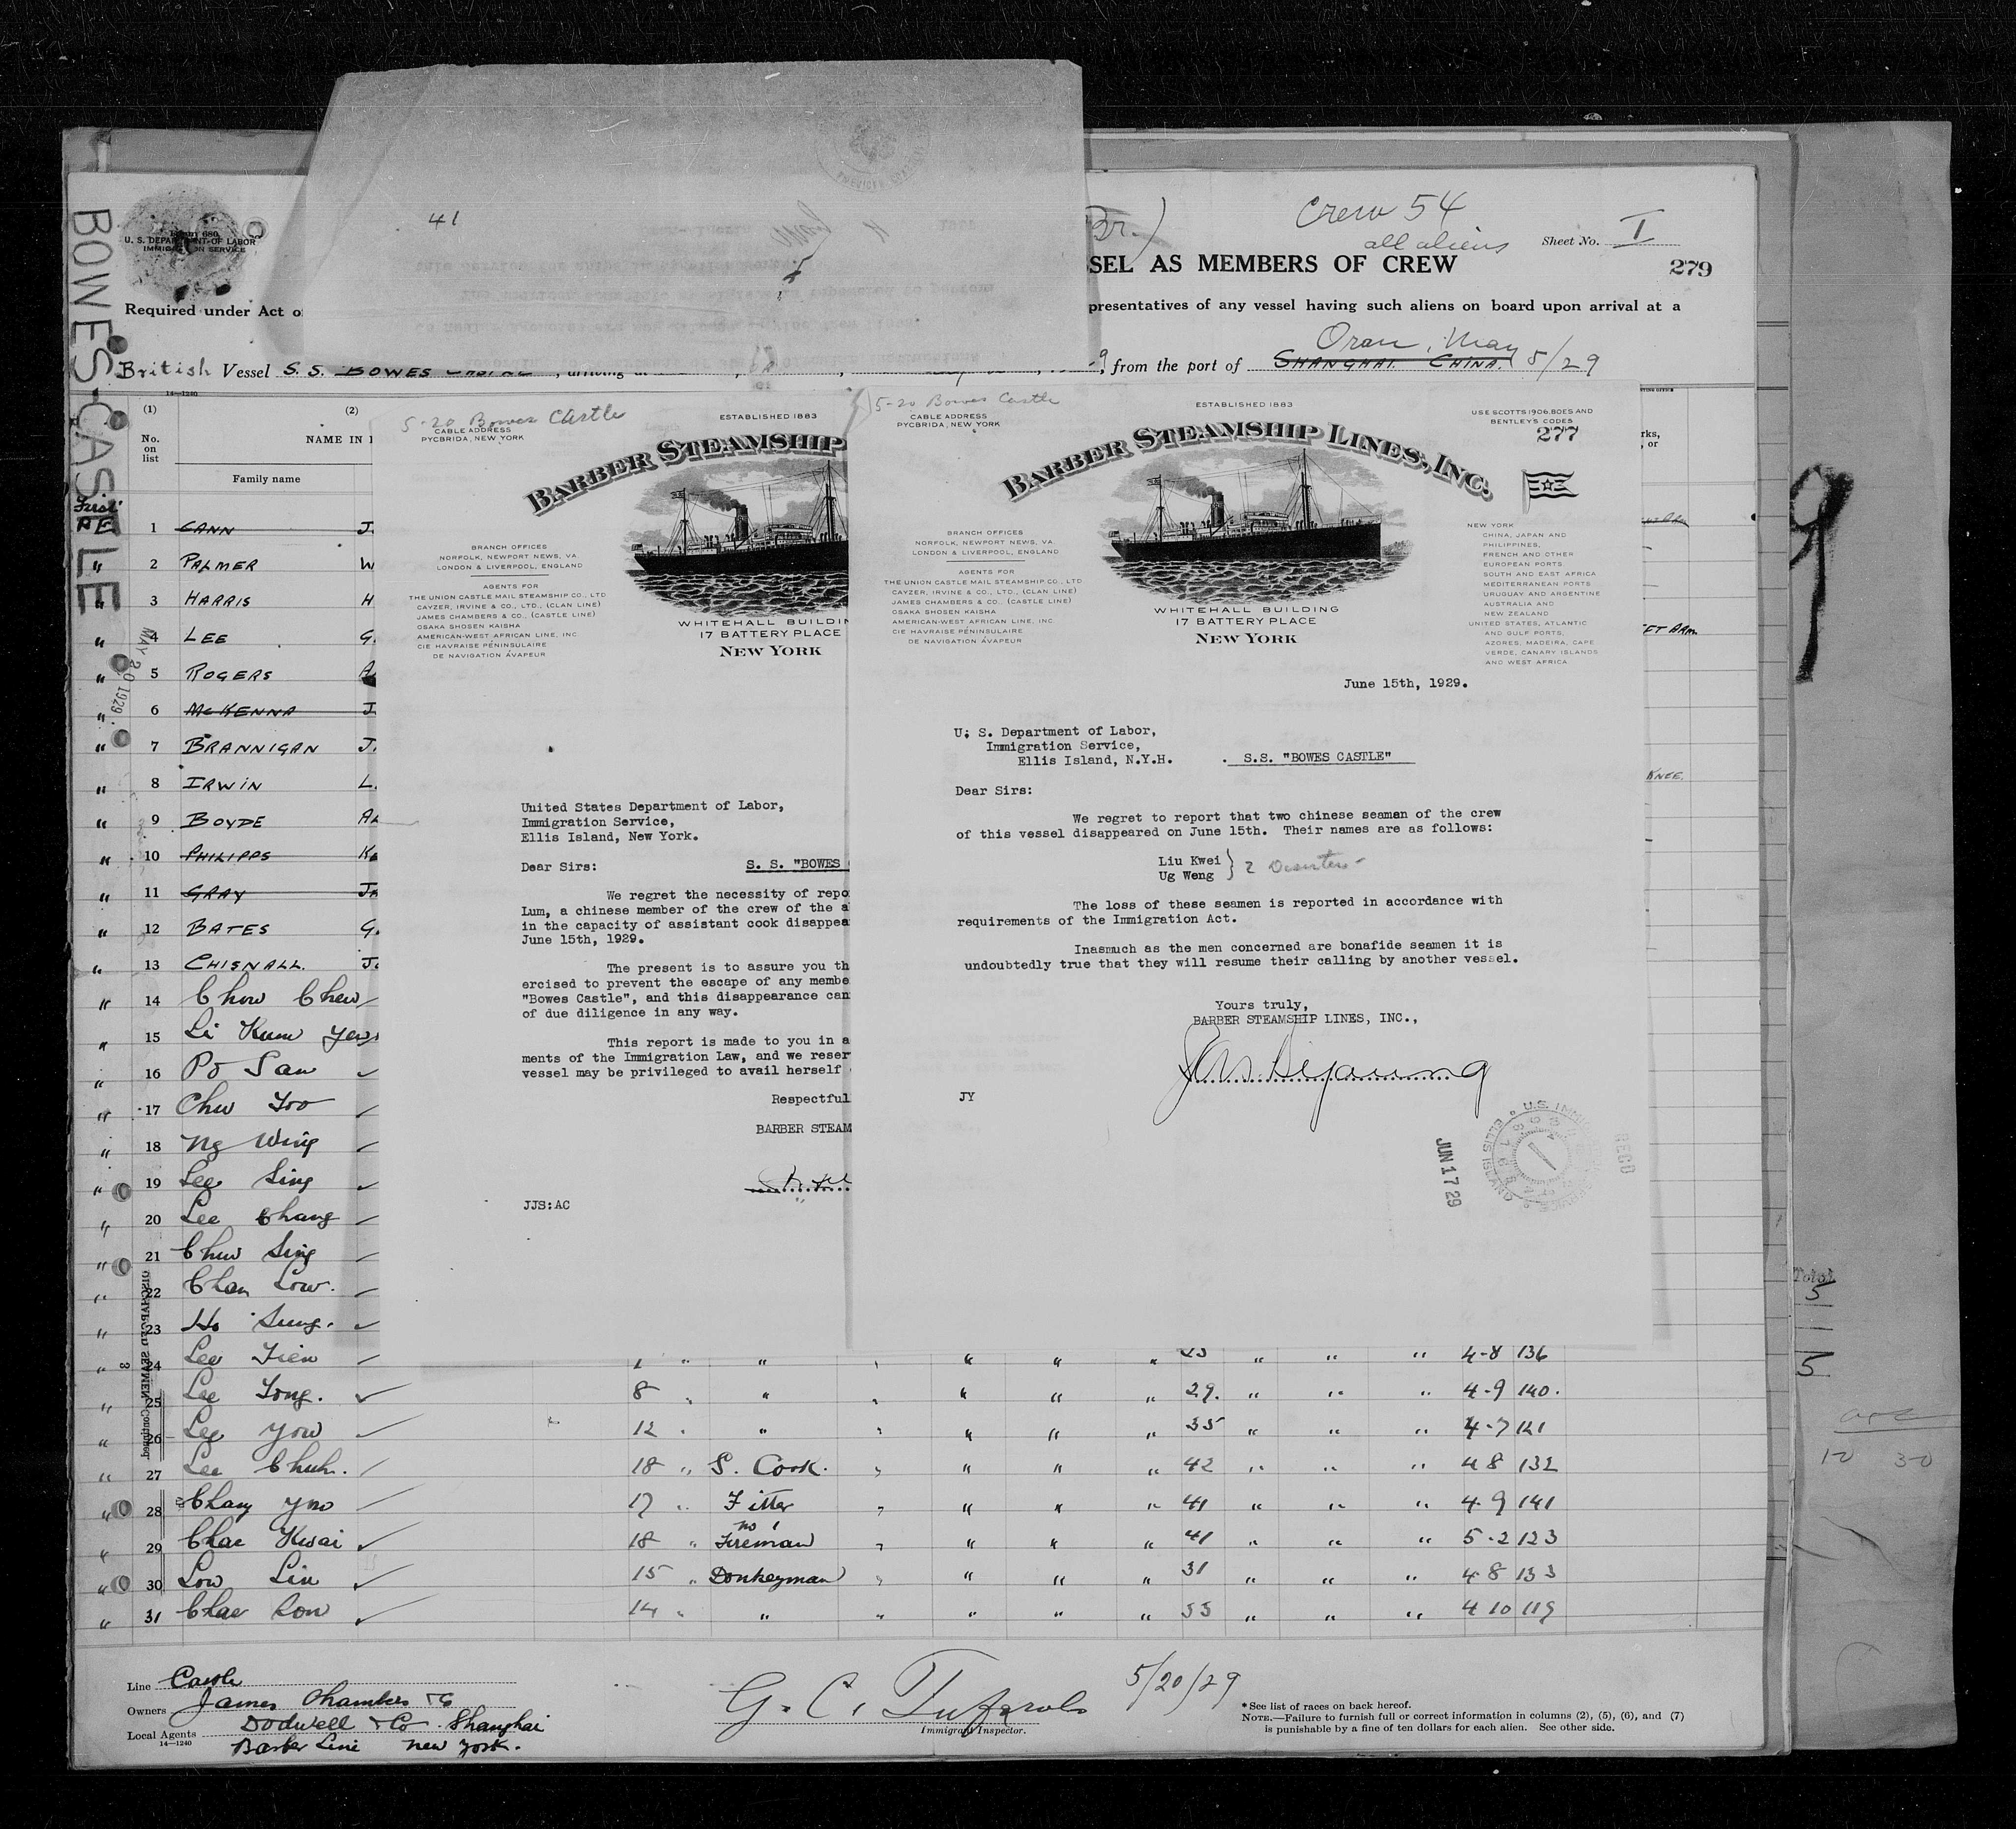 41
Crew 54
all aliens
Sheet No. I
Br.)
SEL AS MEMBERS OF CREW
279
U. S. DEPARTMENT OF LABOR
IMMIGRATION SERVICE
BOWES CASTLE
Required under Act o
presentatives of any vessel having such aliens on board upon arrival at a
Oran, May
British Vessel S. S. BOWES CASTLE, arriving at
9, from the port of SHANGHAI CHINA. 5/29
14—1240
(1)
(2)
No. on list
NAME IN
Family name
rks, or
First
1 CANN J.
2 PALMER W
3 HARRIS H
4 LEE G.
5 ROGERS A
6 McKENNA J
7 BRANNIGAN J.
8 IRWIN L.
9 BOYDE A
10 PHILIPPS K
11 GRAY J
12 BATES G.
13 CHISNALL. J
14 Chow Chew
15 Li Kum
16 Po San
17 Chu Too
18 Ng Wing
19 Lee Sing
20 Lee Chang
21 Chew Sing
22 Chan Low.
23 Ho Sung.
24 Lee Tien " " " " " 23 " " " 4-8 136
25 Lee Tong. 8 " " " " " " 29. " " " 4-9 140.
26 Lee Yow 12 " " " " " " 35 " " " 4-7 121
27 Lee Chuh. 18 " S. Cook. " " " " 42 " " " 4 8 132
28 Chang Yno 17 " Fitter " " " " 41 " " " 4-9 141
29 Chae Kwai 18 " No 1 Fireman " " " " 41 " " " 5-2 123
30 Low Lin 15 " Donkeyman " " " " 31 " " " 4 8 133
31 Chae Son 14 " " " " " " 33 " " " 4 10 119
MAY 20 1929
FT ARM.
KNEE.
5-20 Bowes Castle
CABLE ADDRESS
PYCBRIDA, NEW YORK
ESTABLISHED 1883
BARBER STEAMSHIP
BRANCH OFFICES
NORFOLK, NEWPORT NEWS, VA.
LONDON & LIVERPOOL, ENGLAND
AGENTS FOR
THE UNION CASTLE MAIL STEAMSHIP CO., LTD
CAYZER, IRVINE & CO., LTD., (CLAN LINE)
JAMES CHAMBERS & CO., (CASTLE LINE)
OSAKA SHOSEN KAISHA
AMERICAN-WEST AFRICAN LINE, INC
CIE HAVRAISE PÉNINSULAIRE
DE NAVIGATION ÁVAPEUR
WHITEHALL BUILDIN
17 BATTERY PLACE
NEW YORK
United States Department of Labor,
Immigration Service,
Ellis Island, New York.
Dear Sirs: S. S. "BOWES
We regret the necessity of repo
Lum, a chinese member of the crew of the a
in the capacity of assistant cook disappea
June 15th, 1929.
The present is to assure you th
ercised to prevent the escape of any membe
"Bowes Castle", and this disappearance can
of due diligence in any way.
This report is made to you in a
ments of the Immigration Law, and we reser
vessel may be privileged to avail herself
Respectful
BARBER STEAM
JJS:AC
5-20 Bowes Castle
CABLE ADDRESS
PYCBRIDA, NEW YORK
ESTABLISHED 1883
USE SCOTTS 1906, BOES AND
BENTLEYS CODES
277
BARBER STEAMSHIP LINES, INC.
BRANCH OFFICES
NORFOLK, NEWPORT NEWS, VA.
LONDON & LIVERPOOL, ENGLAND
AGENTS FOR
THE UNION CASTLE MAIL STEAMSHIP CO., LTD
CAYZER, IRVINE & CO., LTD., (CLAN LINE)
JAMES CHAMBERS & CO., (CASTLE LINE)
OSAKA SHOSEN KAISHA
AMERICAN-WEST AFRICAN LINE, INC
CIE HAVRAISE PÉNINSULAIRE
DE NAVIGATION ÁVAPEUR
WHITEHALL BUILDING
17 BATTERY PLACE
NEW YORK
NEW YORK
CHINA, JAPAN AND
PHILIPPINES,
FRENCH AND OTHER
EUROPEAN PORTS.
SOUTH AND EAST AFRICA
MEDITERRANEAN PORTS
URUGUAY AND ARGENTINE
AUSTRALIA AND
NEW ZEALAND
UNITED STATES, ATLANTIC
AND GULF PORTS,
AZORES, MADEIRA, CAPE
VERDE, CANARY ISLANDS
AND WEST AFRICA
June 15th, 1929.
U. S. Department of Labor,
Immigration Service,
Ellis Island, N.Y.H. S.S. "BOWES CASTLE"
Dear Sirs:
We regret to report that two chinese seaman of the crew
of this vessel disappeared on June 15th. Their names are as follows:
Liu Kwei
Ug Weng } 2 Deserters
The loss of these seamen is reported in accordance with
requirements of the Immigration Act.
Inasmuch as the men concerned are bonafide seamen it is
undoubtedly true that they will resume their calling by another vessel.
Yours truly,
BARBER STEAMSHIP LINES, INC.,
JY
JUN 17 29
RECD
ELLIS ISLAND
Total
5
5
10 30
DISCHARGED SEAMEN—Continued
3
Line Castle
Owners James Chambers & Co
Local Agents Dodwell & Co. Shanghai
14—1240
Barber Line New York.
5/20/29
Immigrant Inspector.
*See list of races on back hereof.
NOTE.—Failure to furnish full or correct information in columns (2), (5), (6), and (7)
is punishable by a fine of ten dollars for each alien. See other side.